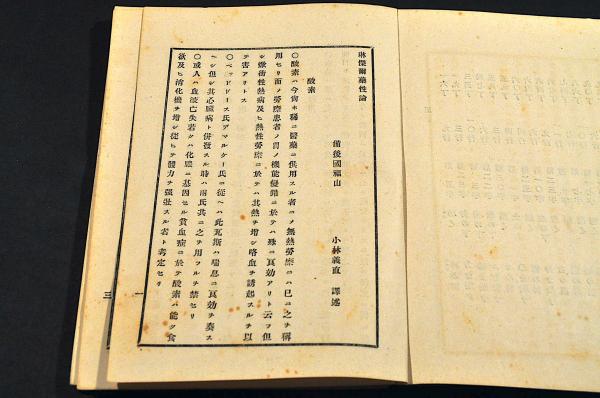 琳傑爾藥性論
備後國福山　小林義直　譯述
酸素
〇酸素ハ今尙ホ稀ニ醫藥ニ供用スル者ニメ無熱勞瘵ニハ已ニ之ヲ稱
用セリ而メ勞瘵患者ノ胃ノ機能變錯ニ於テハ殊ニ良効アリト云フ但
シ焮衝性熱病及ヒ熱性勞瘵ニ於テハ其熱ヲ增シ咯血ヲ誘起スルヲ以
テ害アリトス
〇ベッドドース氏アマルケー氏ニ從ヘハ此瓦斯ハ喘息ニ良効ヲ奏ス
ヘシ但シ其心臟病ト併發スル時ハ兩氏共ニ之ヲ用フルヲ禁セリ
〇或人ハ血液亡失若クハ化膿ニ基因セル貧血病ニ於テ酸素ハ能ク食
欲及ヒ消化機ヲ增シ從ヒテ體力ヲ强壯スル者ト考定セリ
一
三